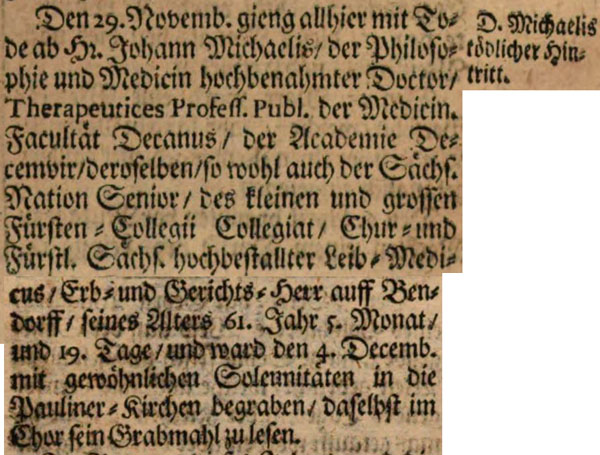 Den 29. Novemb. gieng allhier mit To-
de ab Hr. Johann Michaelis/ der Philoso-
phie und Medicin hochbenahmter Doctor/
Therapeutices Profess. Publ. der Medicin.
Facultät Decanus/ der Academie De-
cemvir/deroselben/so wohl auch der Sächs.
Nation Senior/ des kleinen und grossen
Fürsten-Collegii Collegiat/ Chur- und
Fürstl. Sächs. hochbestallter Leib-Medi-
cus/Erb- und Gerichts-Herr auff Ben-
dorff/ seines Alters 61. Jahr 5. Monat/
und 19. Tage/und ward den 4. Decemb.
mit gewöhnlichen Solennitäten in die
Pauliner-Kirchen begraben/ daselbst im
Chor sein Grabmahl zu lesen.
D. Michaelis
tödlicher Hin-
tritt.